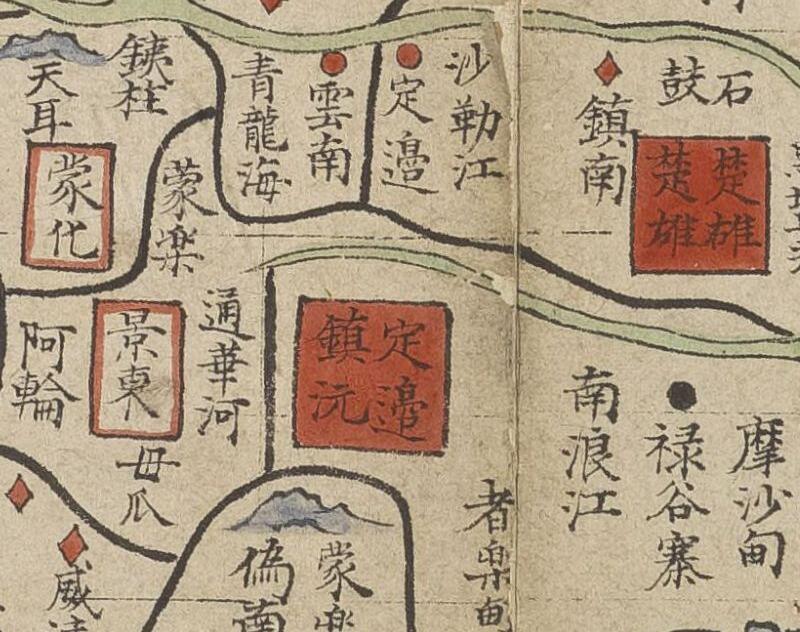 石鼓
楚雄
楚雄
鎮南
沙勒江
定邉
雲南
青龍海
鉄柱
天耳
蒙化
蒙楽
定邉
鎮沅
通華河
景東
阿輪
毋瓜
摩沙甸
禄谷寨
南浪江
者楽甸
蒙楽
偽南
威遠